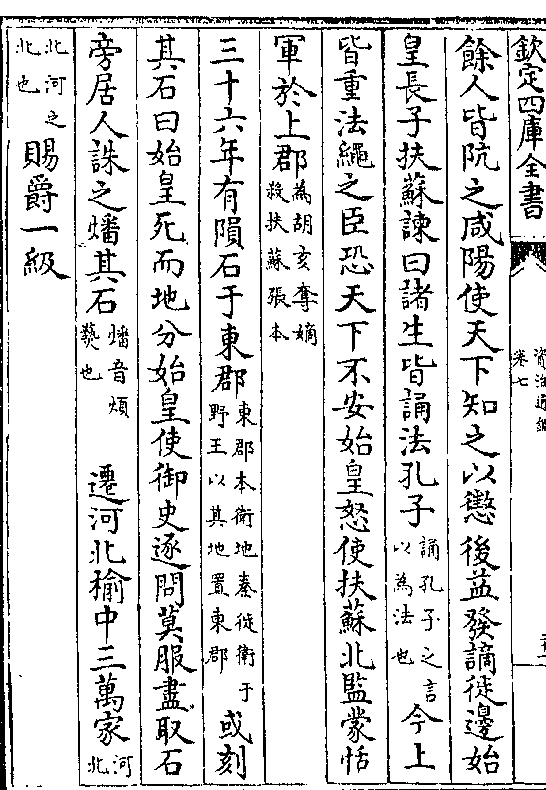 欽定四庫全書
資治通鑑
卷七
餘人皆阬之咸陽使天下知之以懲後益發謫徙邊始
皇長子扶蘇諫曰諸生皆誦法孔子誦孔子之言以為法也今上
皆重法繩之臣恐天下不安始皇怒使扶蘇北監蒙恬
軍於上郡為胡亥奪嫡殺扶蘇張本
三十六年有隕石于東郡東郡本衛地秦徙衛于野王以其地置東郡或刻
其石曰始皇死而地分始皇使御史逐問莫服盡取石
旁居人誅之燔其石燔音煩爇也 遷河北榆中三萬家河北
北河之北也賜爵一級